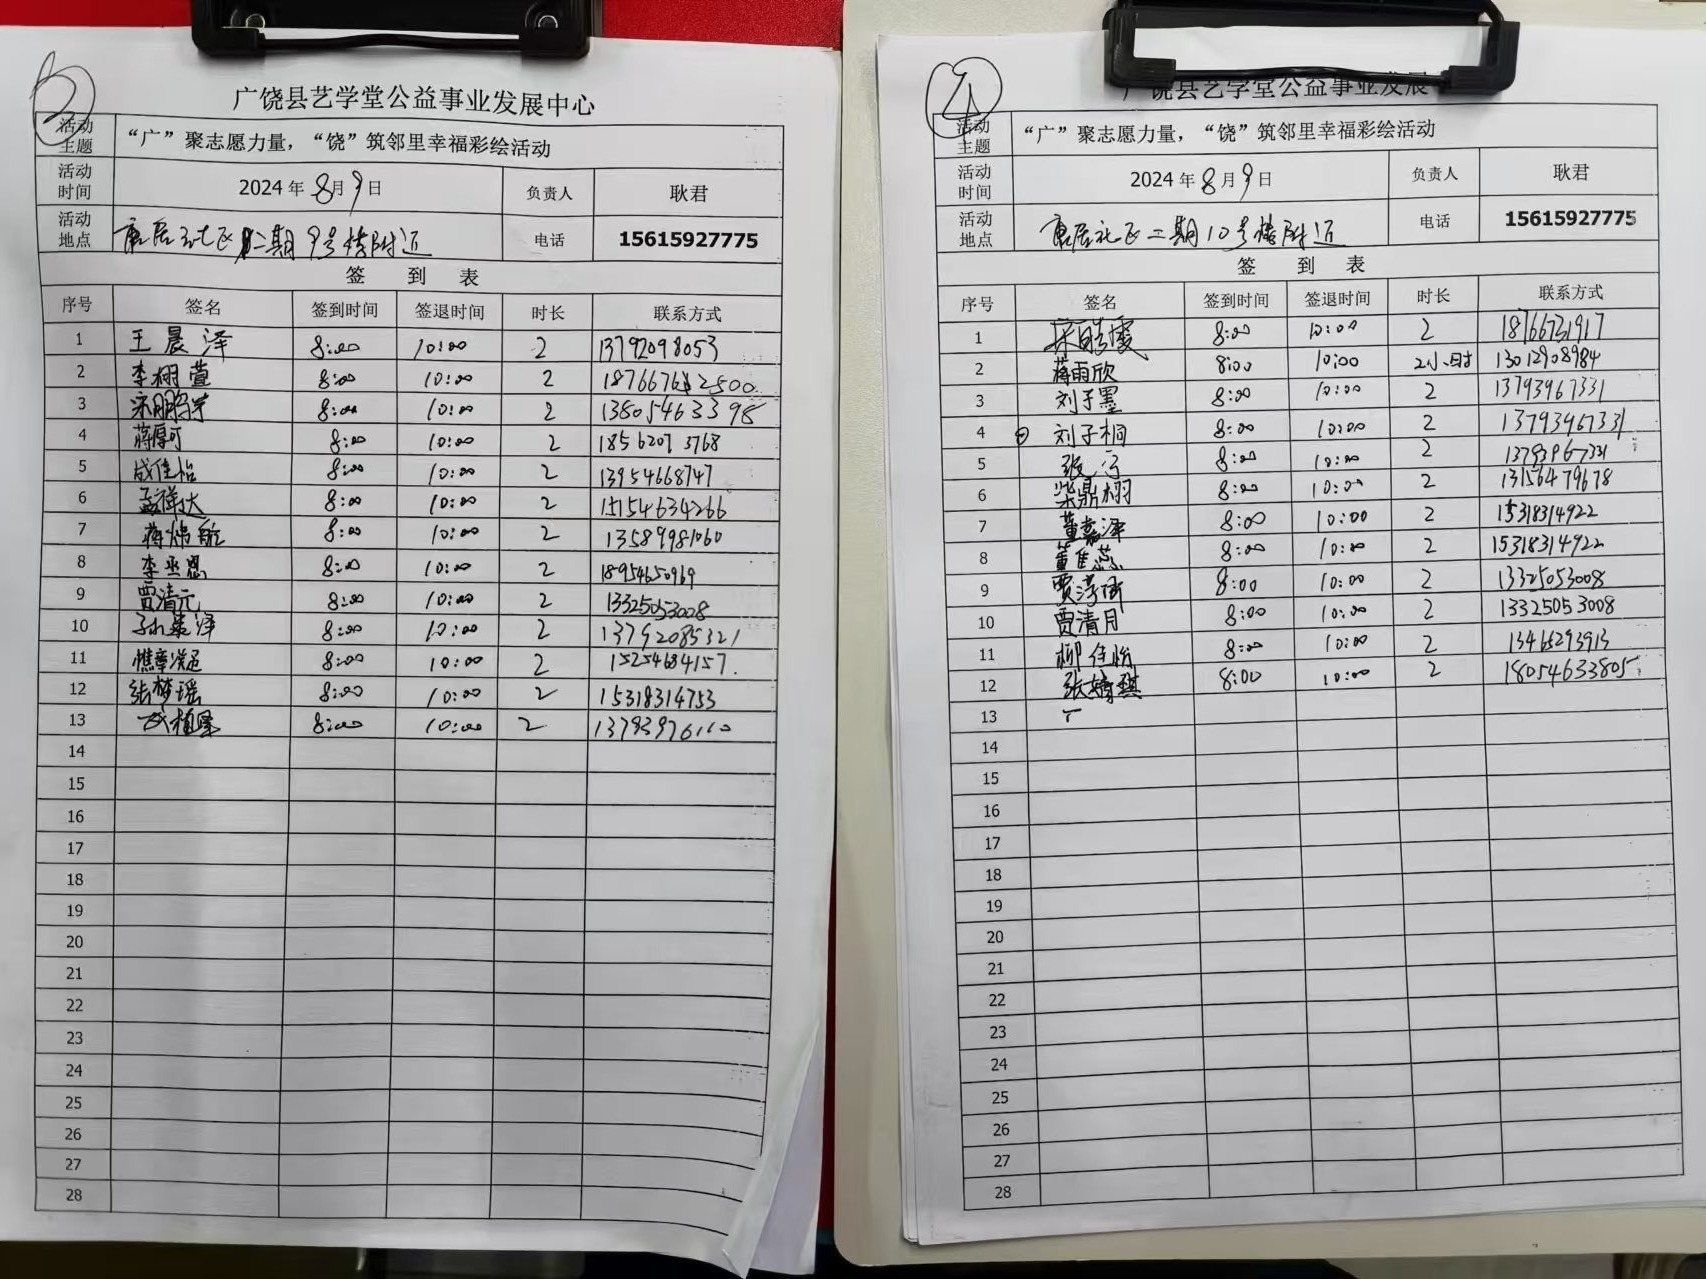 3
广饶县艺学堂公益事业发展中心
活动主题 “广”聚志愿力量，“饶”筑邻里幸福彩绘活动
活动时间 2024年8月9日 负责人 耿君
活动地点 康居社区二期9号楼附近 电话 15615927775
签 到 表
序号 签名 签到时间 签退时间 时长 联系方式
1 王晨泽 8:00 10:00 2 13792098053
2 李栩萱 8:00 10:00 2
3 8:00 10:00 2 13805463398
4 蒋厚可 8:00 10:00 2 18562073768
5 成佳怡 8:00 10:00 2 13954668747
6 孟祥达 8:00 10:00 2 15154634266
7 蒋炜航 8:00 10:00 2 13589981060
8 李丞恩 8:00 10:00 2 18954650969
9 贾清元 8:00 10:00 2 13325053008
10 8:00 10:00 2 13792085321
11 8:00 10:00 2 15254684157
12 张梦瑶 8:00 10:00 2 15318314753
13 8:00 10:00 2 13793976110
14
15
16
17
18
19
20
21
22
23
24
25
26
27
28
4
广饶县艺学堂公益事业发展
活动主题 “广”聚志愿力量，“饶”筑邻里幸福彩绘活动
活动时间 2024年8月9日 负责人 耿君
活动地点 康居社区二期10号楼附近 电话 15615927775
签 到 表
序号 签名 签到时间 签退时间 时长 联系方式
1 8:00 10:00 2 18766731917
2 蒋雨欣 8:00 10:00 2小时 13012908984
3 刘子墨 8:00 10:00 2 13793967331
4 刘子桐 8:00 10:00 2 13793967331
5 8:00 10:00 2 13793967331
6 柴鼎栩 8:00 10:00 2 13156479678
7 董嘉泽 8:00 10:00 2 15318314922
8 董佳蕊 8:00 10:00 2 15318314922
9 8:00 10:00 2 13325053008
10 贾清月 8:00 10:00 2 13325053008
11 柳佳怡 8:00 10:00 2 13466293913
12 张婧琪 8:00 10:00 2 18054633805
13
14
15
16
17
18
19
20
21
22
23
24
25
26
27
28